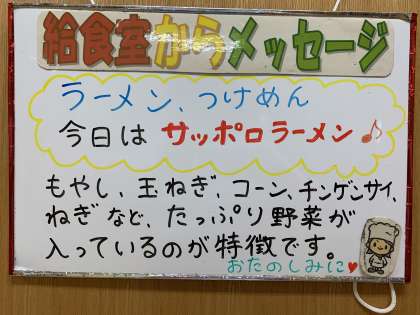 給食室からメッセージ
ラーメン、つけめん
今日は サッポロラーメン♪
もやし、玉ねぎ、コーン、チンゲンサイ、
ねぎなど、たっぷり野菜が
入っているのが特徴です。
おたのしみに♥